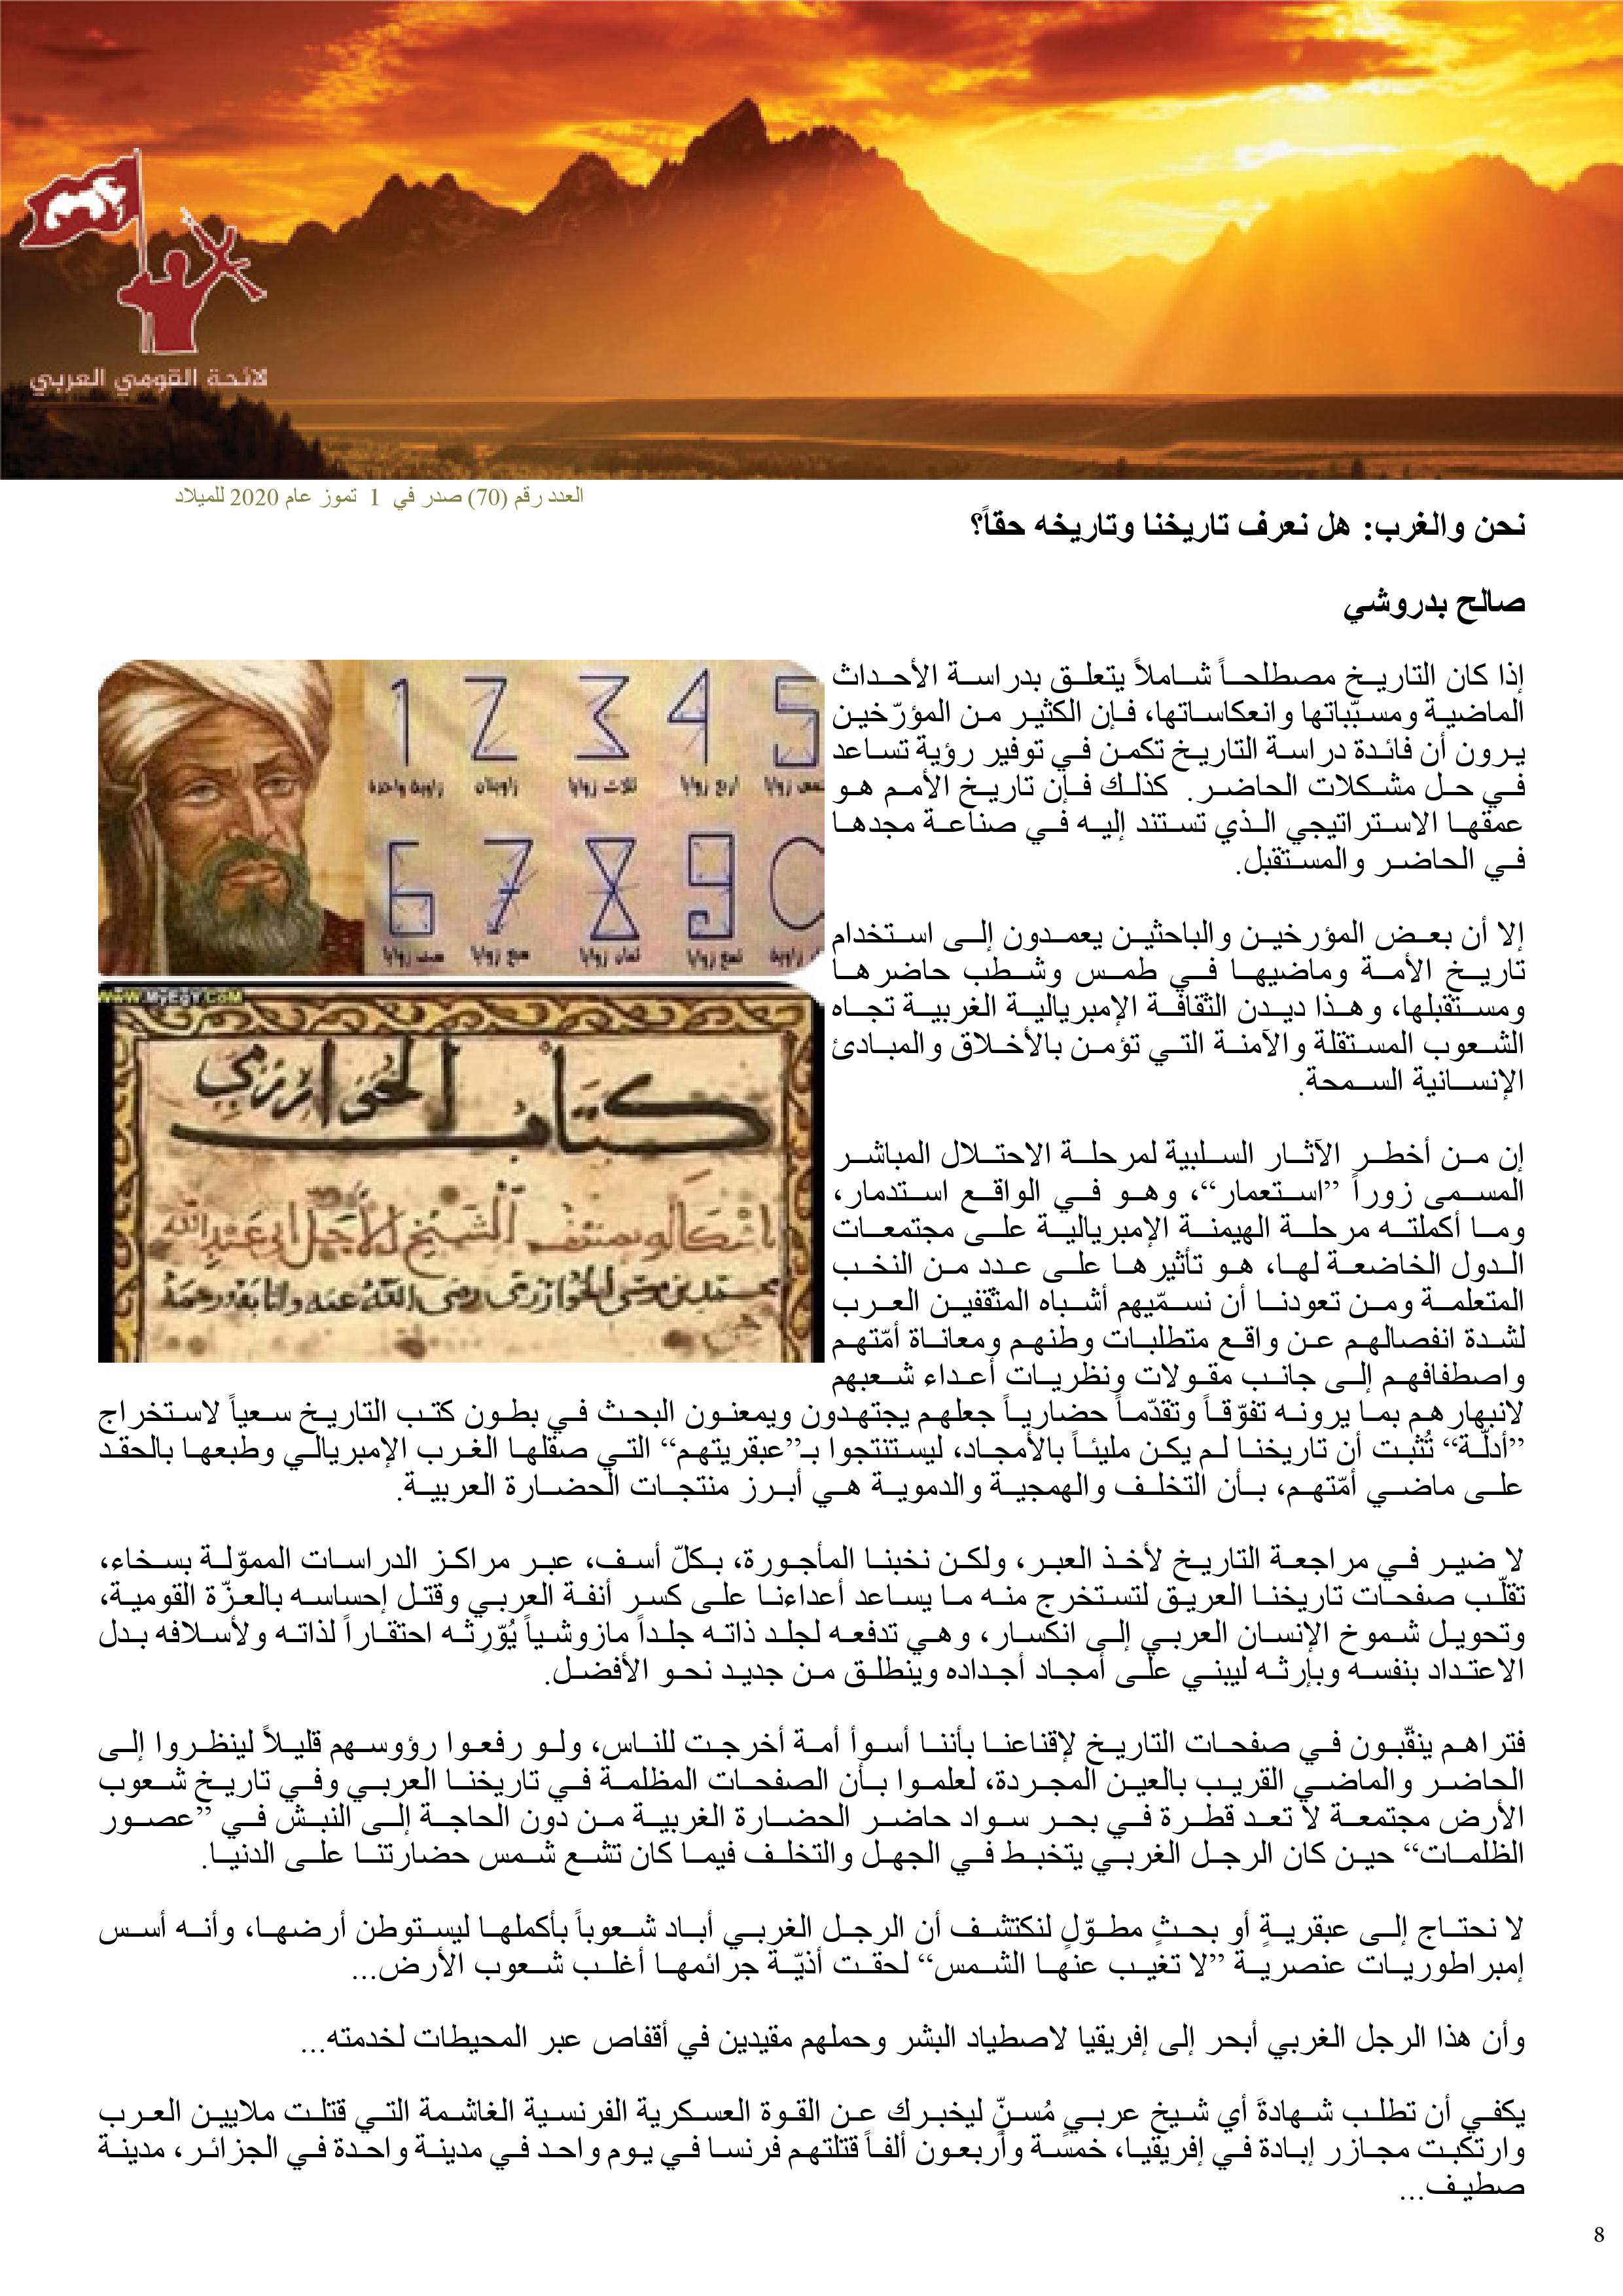 لائحة القومي العربي
العدد رقم (70) صدر في 1 تموز عام 2020 للميلاد
نحن والغرب: هل نعرف تاريخنا وتاريخه حقاً؟
صالح بدروشي
1 2 3 4 5
زاوية واحدة زاويتان ثلاث زوايا اربع زوايا خمس زوايا
6 7 8 9 0
ست زوايا سبع زوايا ثمان زوايا تسع زوايا زاوية
WwW.MyEgY.CoM
كتاب الخوارزمي
الشيخ الأجل أبي عبد الله
محمد بن موسى الخوارزمي رضي الله عنه
إذا كان التاريخ مصطلحاً شاملاً يتعلق بدراسة الأحداث
الماضية ومسبّباتها وانعكاساتها، فإن الكثير من المؤرّخين
يرون أن فائدة دراسة التاريخ تكمن في توفير رؤية تساعد
في حل مشكلات الحاضر. كذلك فإن تاريخ الأمم هو
عمقها الاستراتيجي الذي تستند إليه في صناعة مجدها
في الحاضر والمستقبل.
إلا أن بعض المؤرخين والباحثين يعمدون إلى استخدام
تاريخ الأمة وماضيها في طمس وشطب حاضرها
ومستقبلها، وهذا ديدن الثقافة الإمبريالية الغربية تجاه
الشعوب المستقلة والآمنة التي تؤمن بالأخلاق والمبادئ
الإنسانية السمحة.
إن من أخطر الآثار السلبية لمرحلة الاحتلال المباشر
المسمى زوراً ”استعمار“، وهو في الواقع استدمار،
وما أكملته مرحلة الهيمنة الإمبريالية على مجتمعات
الدول الخاضعة لها، هو تأثيرها على عدد من النخب
المتعلمة ومن تعودنا أن نسمّيهم أشباه المثقفين العرب
لشدة انفصالهم عن واقع متطلبات وطنهم ومعاناة أمّتهم
واصطفافهم إلى جانب مقولات ونظريات أعداء شعبهم
لانبهارهم بما يرونه تفوّقاً وتقدّماً حضارياً جعلهم يجتهدون ويمعنون البحث في بطون كتب التاريخ سعياً لاستخراج
”أدلّة“ تُثبت أن تاريخنا لم يكن مليئاً بالأمجاد، ليستنتجوا بـ”عبقريتهم“ التي صقلها الغرب الإمبريالي وطبعها بالحقد
على ماضي أمّتهم، بأن التخلف والهمجية والدموية هي أبرز منتجات الحضارة العربية.
لا ضير في مراجعة التاريخ لأخذ العبر، ولكن نخبنا المأجورة، بكلّ أسف، عبر مراكز الدراسات المموّلة بسخاء،
تقلّب صفحات تاريخنا العريق لتستخرج منه ما يساعد أعداءنا على كسر أنفة العربي وقتل إحساسه بالعزّة القومية،
وتحويل شموخ الإنسان العربي إلى انكسار، وهي تدفعه لجلد ذاته جلداً مازوشياً يُوّرِثه احتقاراً لذاته ولأسلافه بدل
الاعتداد بنفسه وبإرثه ليبني على أمجاد أجداده وينطلق من جديد نحو الأفضل.
فتراهم ينقّبون في صفحات التاريخ لإقناعنا بأننا أسوأ أمة أخرجت للناس، ولو رفعوا رؤوسهم قليلاً لينظروا إلى
الحاضر والماضي القريب بالعين المجردة، لعلموا بأن الصفحات المظلمة في تاريخنا العربي وفي تاريخ شعوب
الأرض مجتمعة لا تعد قطرة في بحر سواد حاضر الحضارة الغربية من دون الحاجة إلى النبش في ”عصور
الظلمات“ حين كان الرجل الغربي يتخبط في الجهل والتخلف فيما كان تشع شمس حضارتنا على الدنيا.
لا نحتاج إلى عبقريةٍ أو بحثٍ مطوّلٍ لنكتشف أن الرجل الغربي أباد شعوباً بأكملها ليستوطن أرضها، وأنه أسس
إمبراطوريات عنصرية ”لا تغيب عنها الشمس“ لحقت أذيّة جرائمها أغلب شعوب الأرض...
وأن هذا الرجل الغربي أبحر إلى إفريقيا لاصطياد البشر وحملهم مقيدين في أقفاص عبر المحيطات لخدمته...
يكفي أن تطلب شهادةَ أي شيخ عربي مُسنّ ليخبرك عن القوة العسكرية الفرنسية الغاشمة التي قتلت ملايين العرب
وارتكبت مجازر إبادة في إفريقيا، خمسة وأربعون ألفاً قتلتهم فرنسا في يوم واحد في مدينة واحدة في الجزائر، مدينة
صطيف...
8